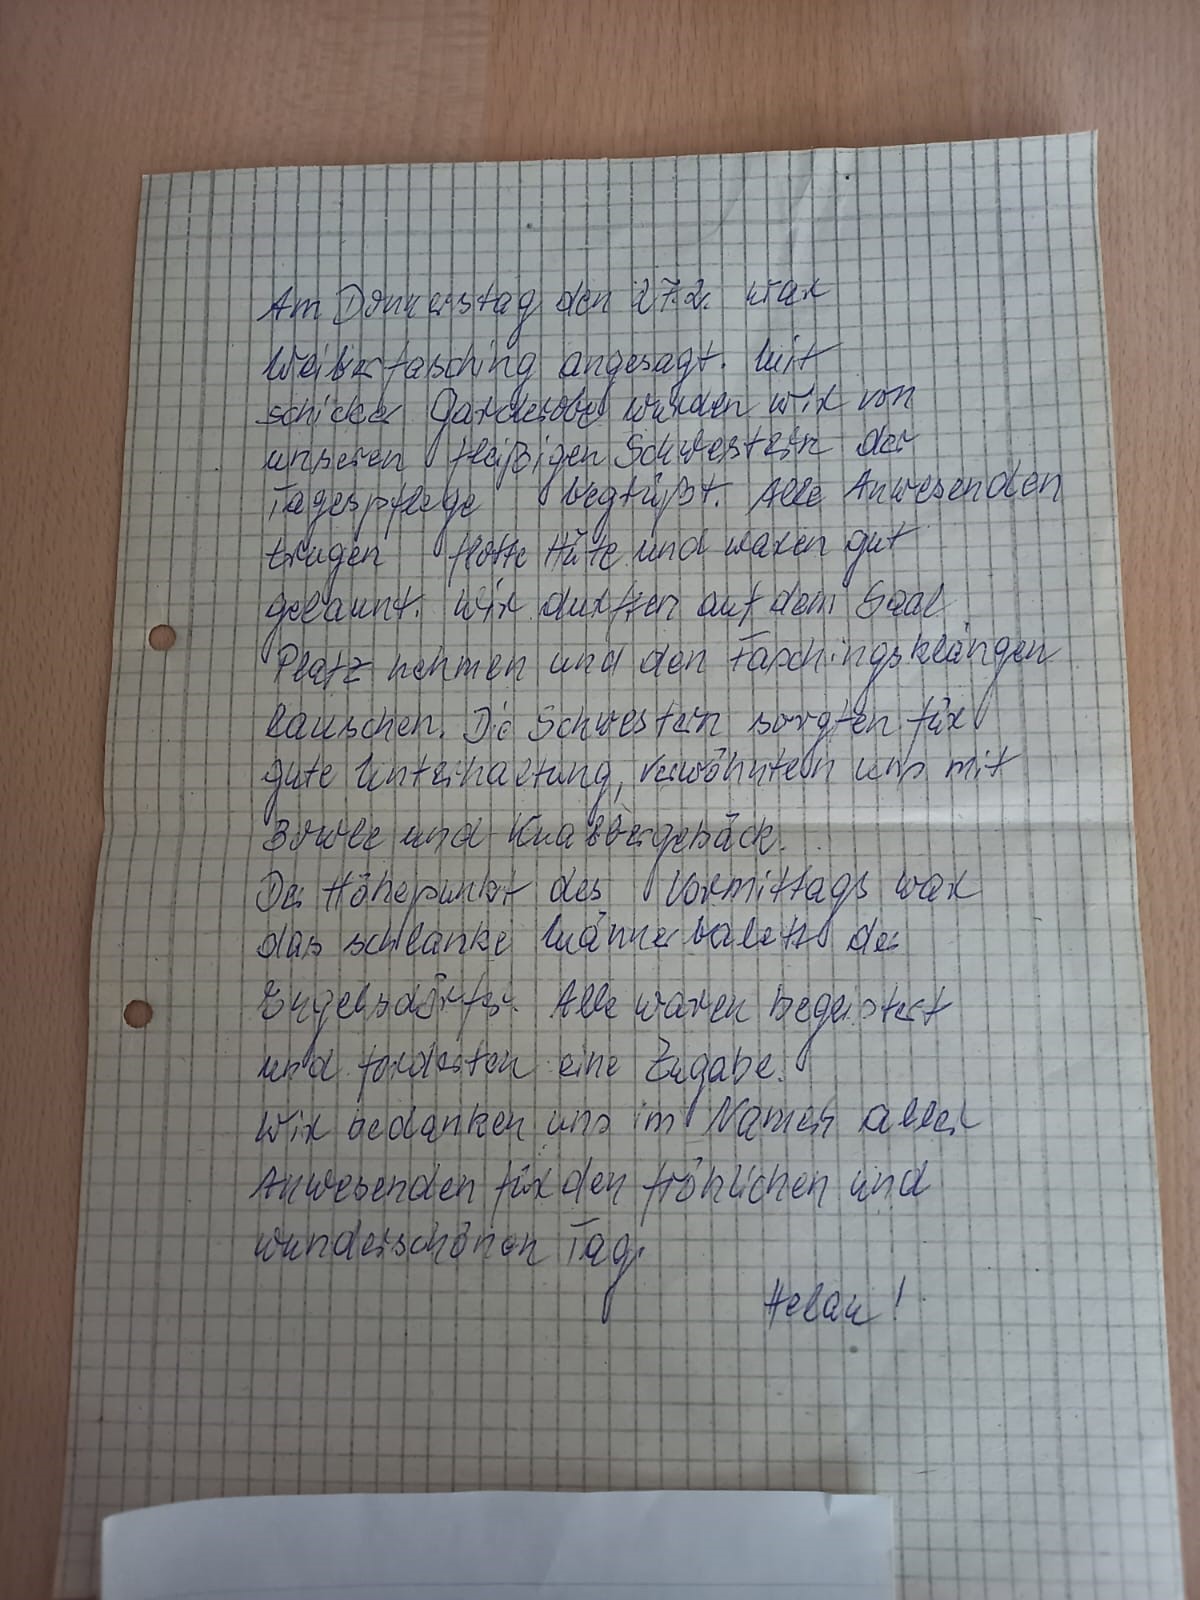 Am Donnerstag den 27.2. war
Weiberfasching angesagt. Mit
schicker Garderobe wurden wir von
unseren fleißigen Schwestern der
Tagespflege begrüßt. Alle Anwesenden
trugen flotte Hüte und waren gut
gelaunt. Wir durften auf dem Saal
Platz nehmen und den Faschingsklängen
lauschen. Die Schwestern sorgten für
gute Unterhaltung, verwöhnten uns mit
Bowle und Knabbergebäck.
Der Höhepunkt des Vormittags war
das schlanke Männerballett der
Engelsdörfer. Alle waren begeistert
und forderten eine Zugabe.
Wir bedanken uns im Namen aller
Anwesenden für den fröhlichen und
wunderschönen Tag.
Helau!